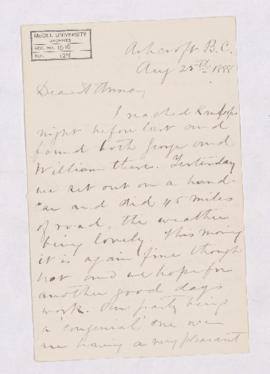 McGILL UNIVERSITY
ARCHIVES
ACC. NO. 1516
REF.
Ashcroft B.C.
Aug 25th 1888
Dearest Anna,
I reached Kamloops
night before last and
found both George and
William there. Yesterday
we set out on a hand-
car and did 45 miles
of road, the weather
being lovely. This morning
it is again fine though
hot and we hope for
another good days
work. Our party being
a congenial one we
are having a very pleasant